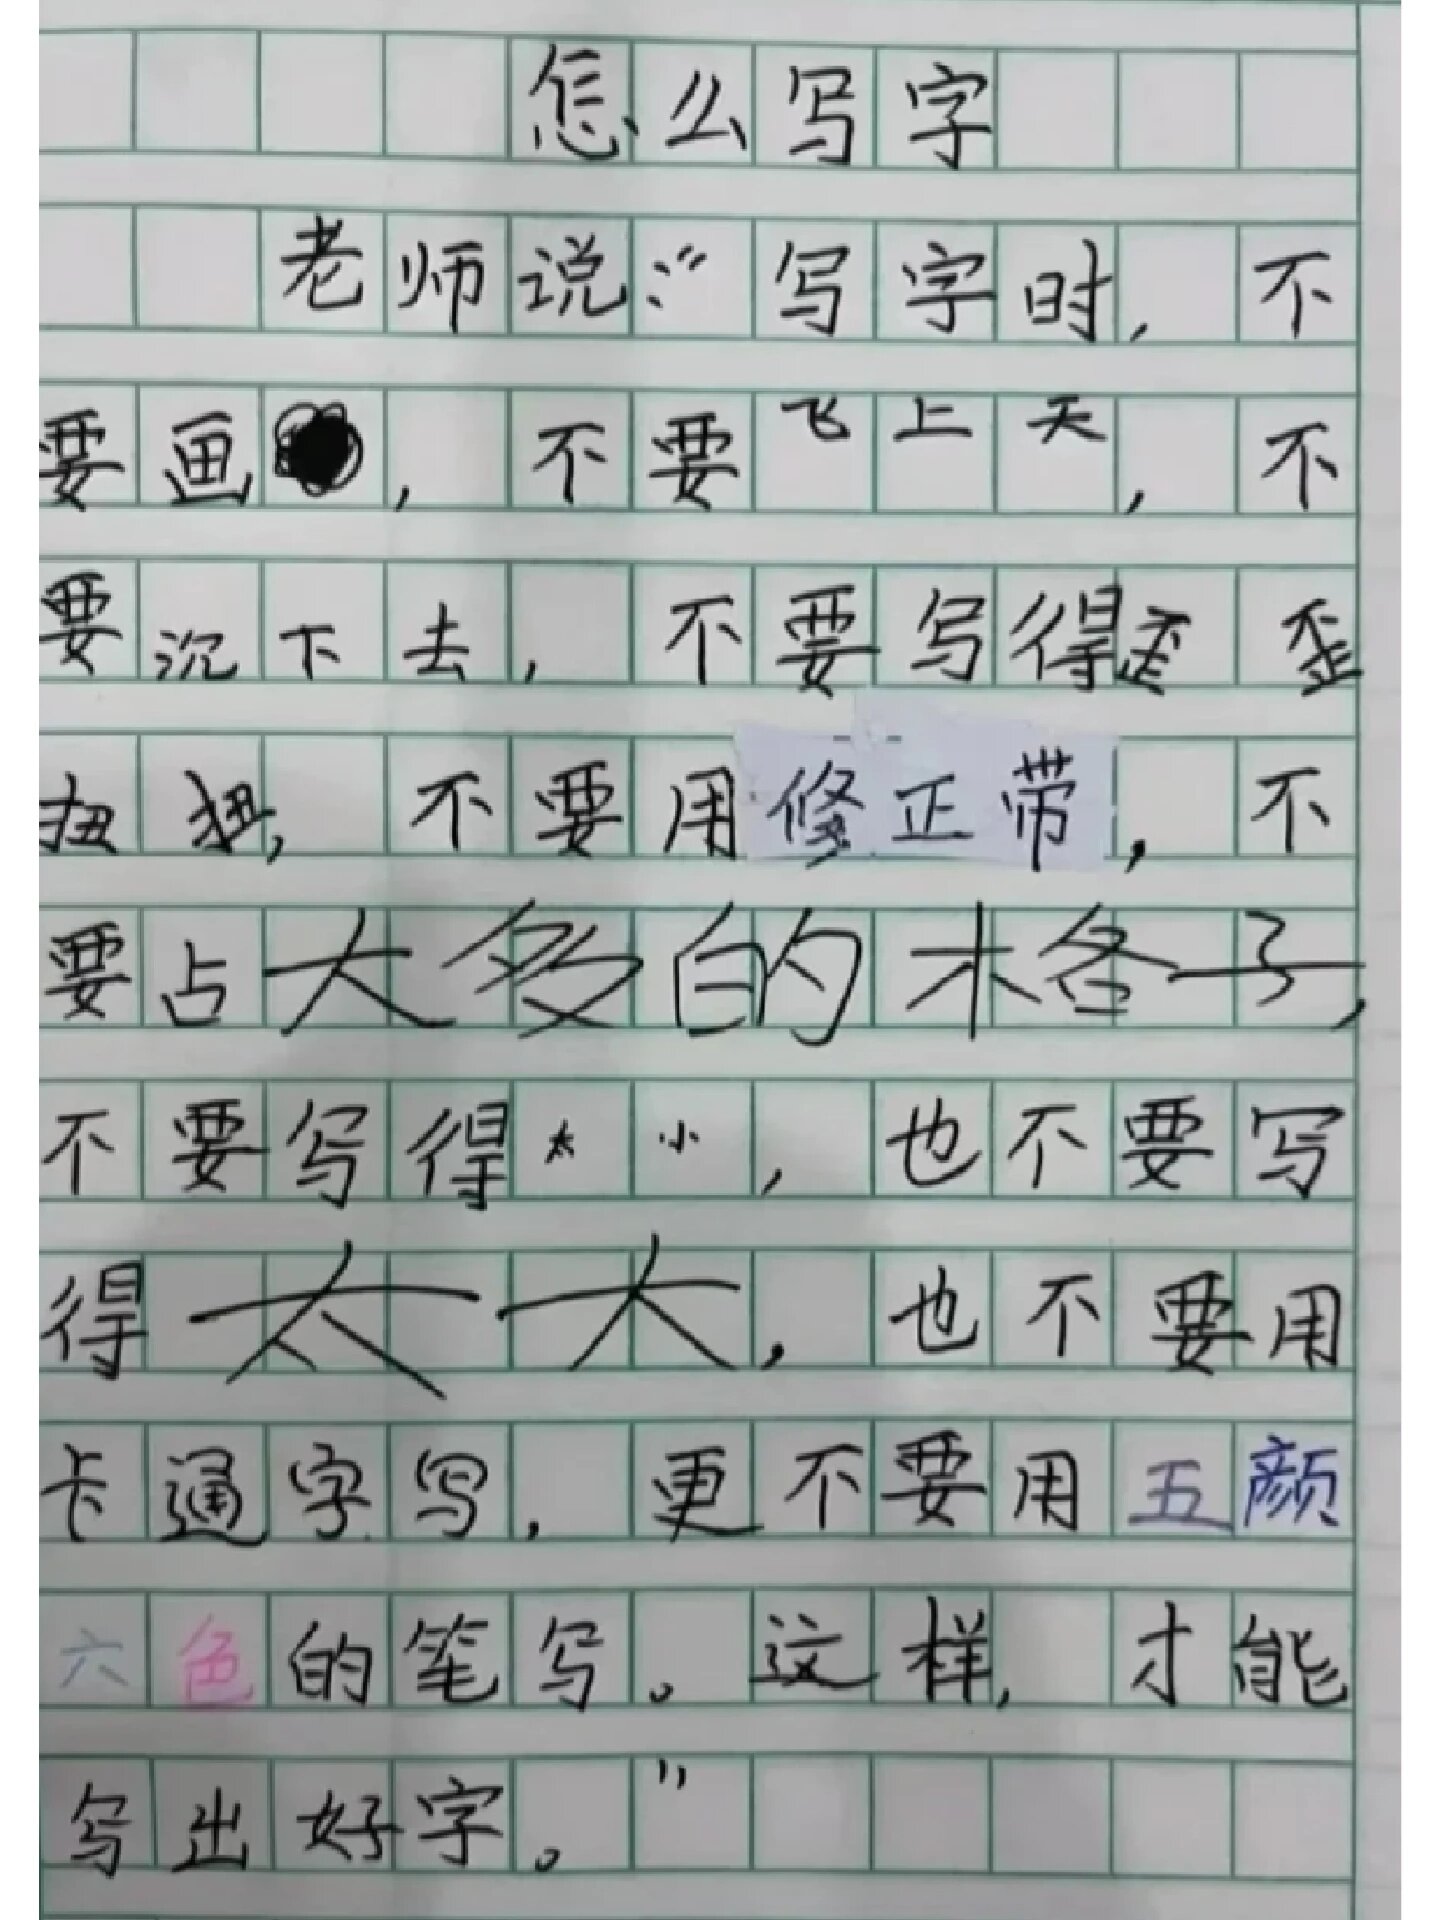 怎么写字
老师说：“写字时，不
要画，不要飞上天，不
要沉下去，不要写得歪歪
扭扭，不要用修正带，不
要占大多的格子，
不要写得太小，也不要写
得太大，也不要用
卡通字写，更不要用五颜
六色的笔写。这样，才能
写出好字。”